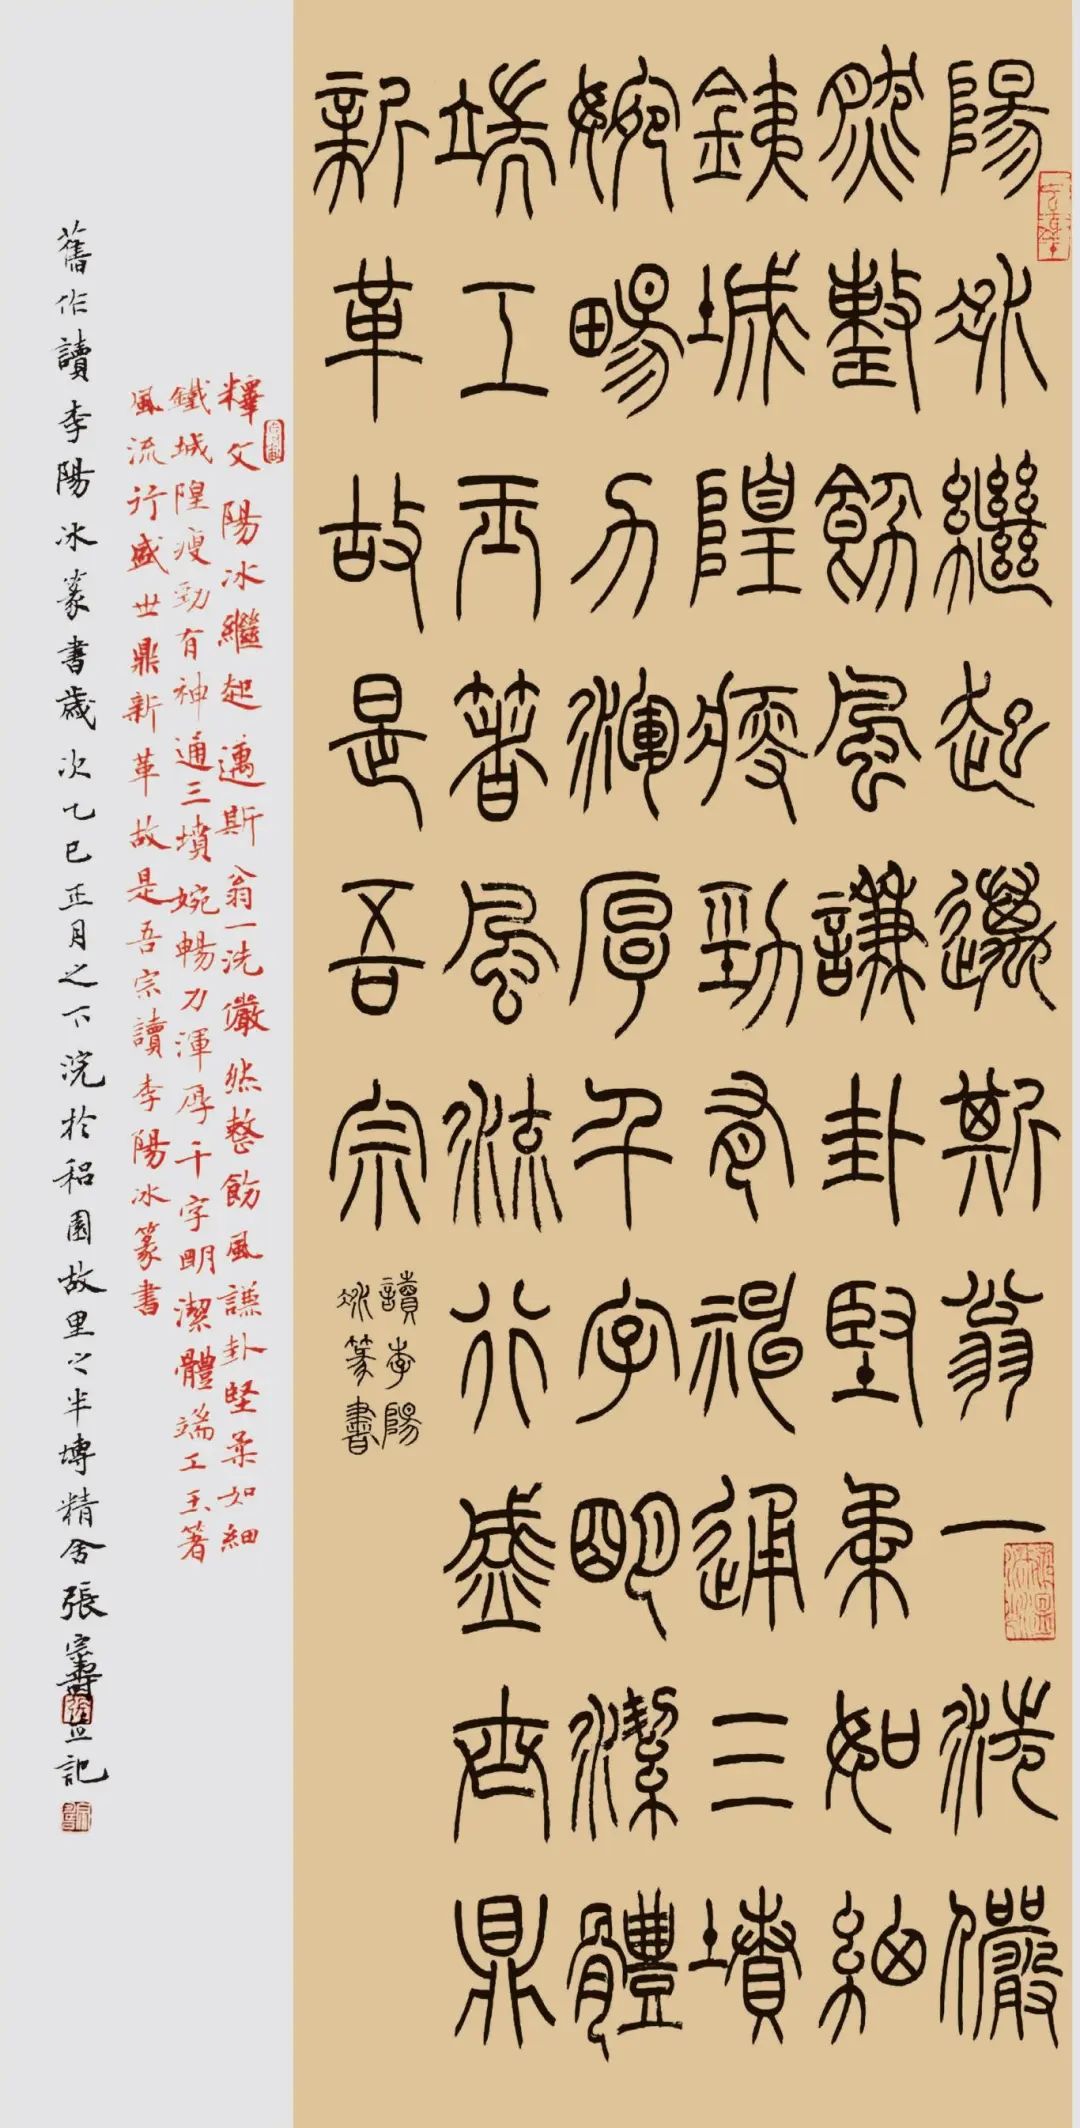 陽冰繼起邁斯翁一洗儼
然整飭風謙卦堅柔如細
鐵城隍瘦勁有神通三墳
婉暢力渾厚千字明潔體
端工玉箸風流行盛世鼎
新革故是吾宗
讀李陽
冰篆書
釋文 陽冰繼起邁斯翁一洗儼然整飭風謙卦堅柔如細
鐵城隍瘦勁有神通三墳婉暢力渾厚千字明潔體端工玉箸
風流行盛世鼎新革故是吾宗讀李陽冰篆書
舊作讀李陽冰篆書歲次乙巳正月之下浣於稆園故里之半塼精舍張壽並記